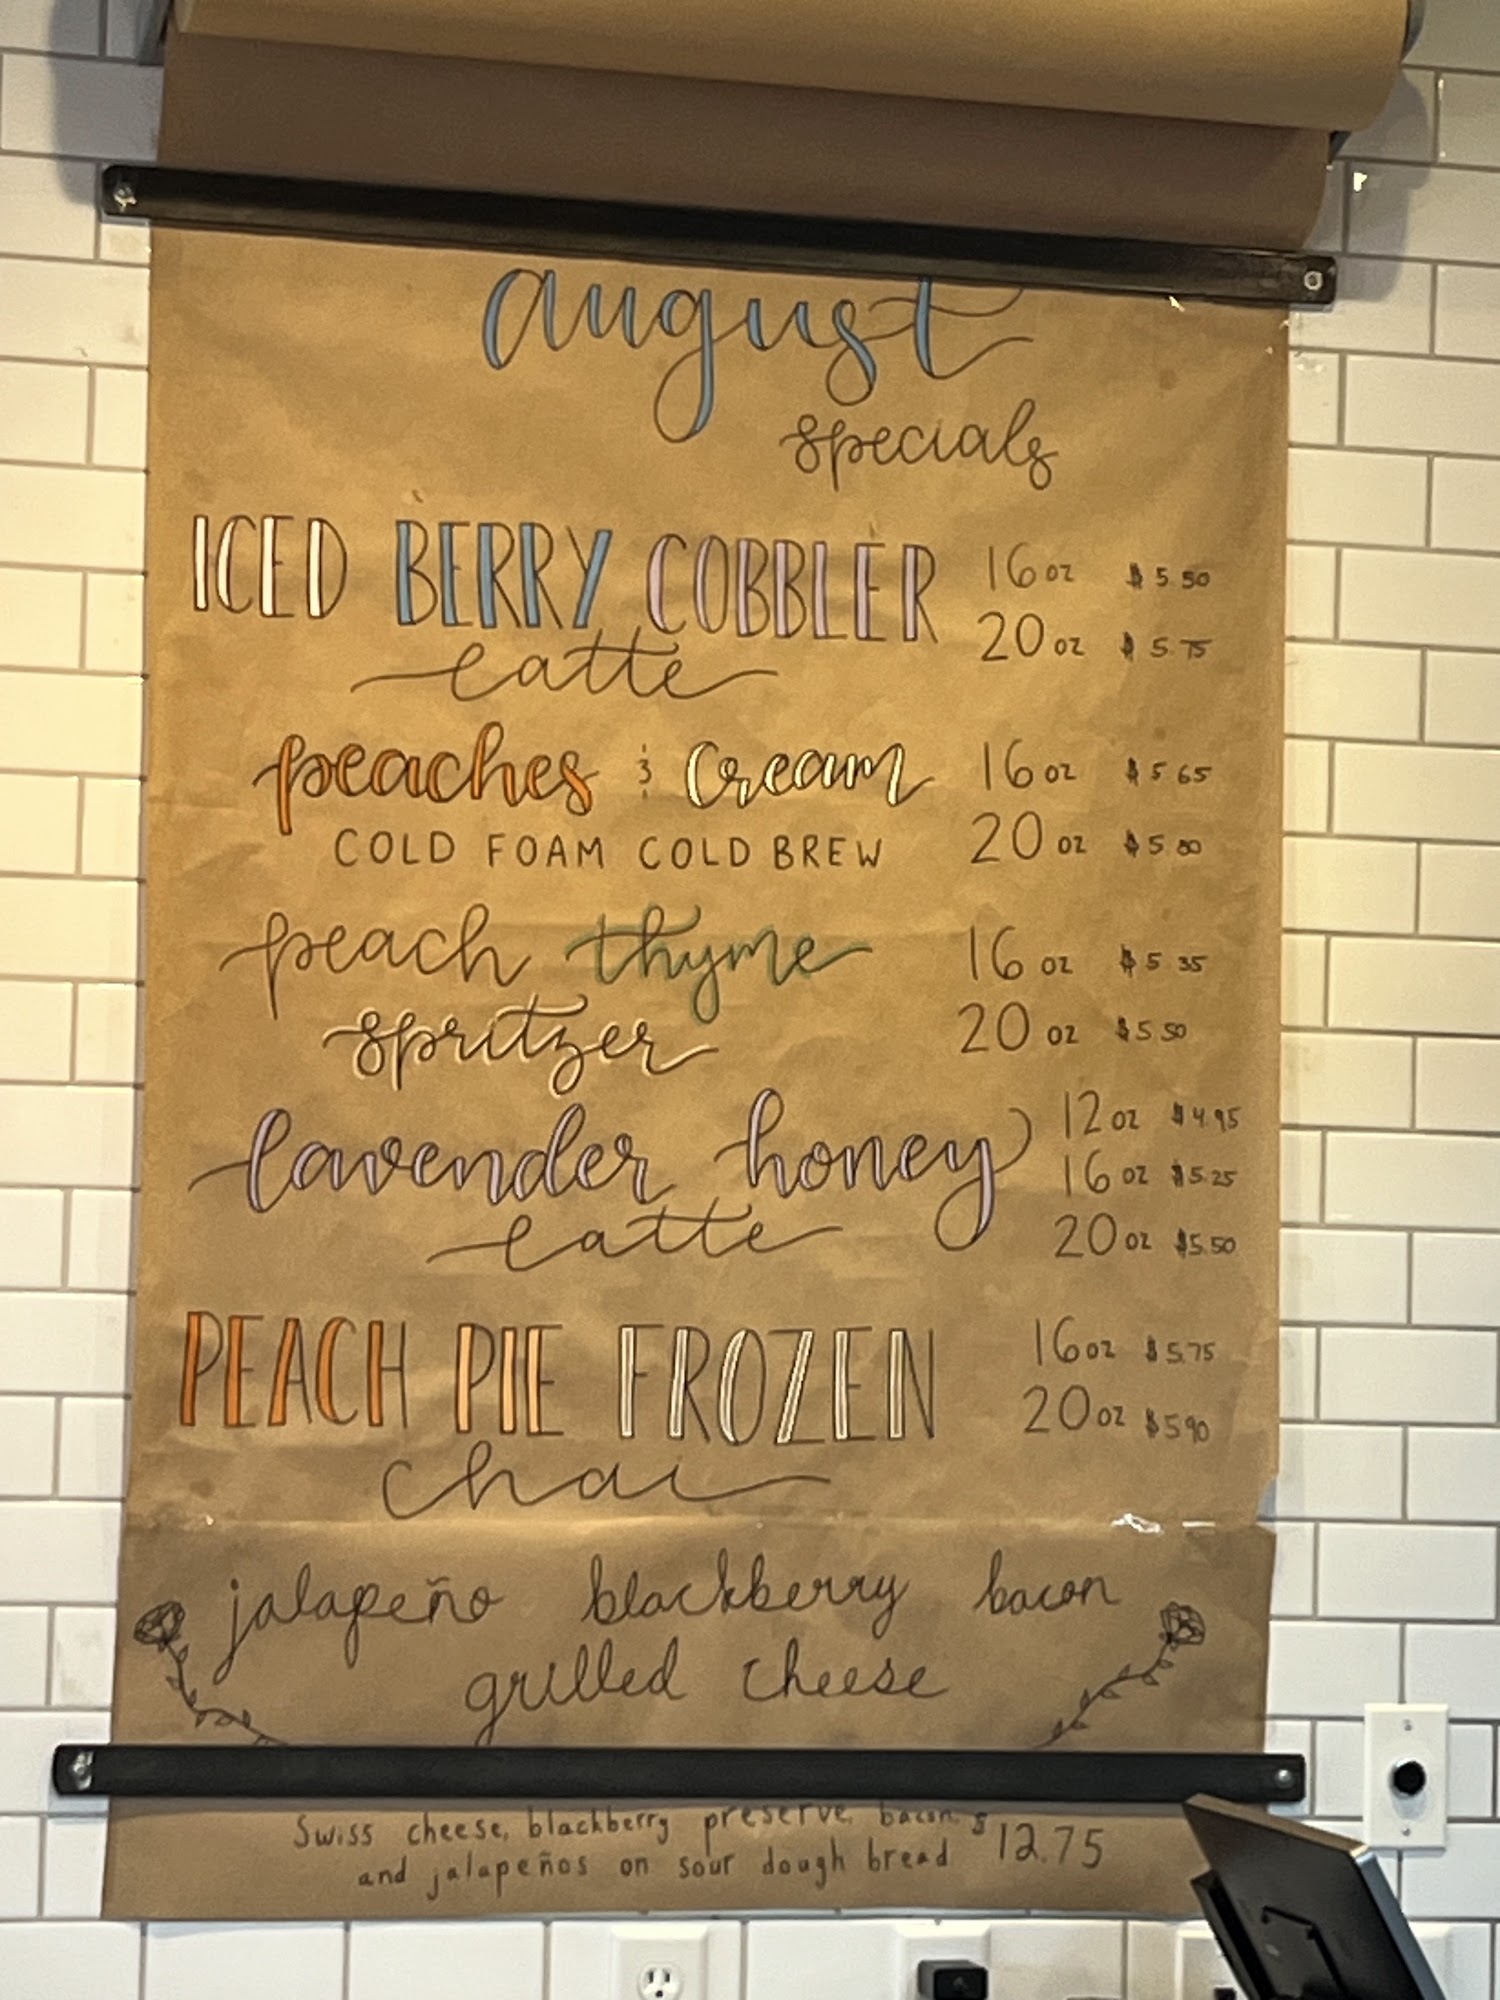 august
specials
ICED BERRY COBBLER
latte
16 oz $5.50
20 oz $5.75
peaches & cream
COLD FOAM COLD BREW
16 oz $5.65
20 oz $5.80
peach thyme
spritzer
16 oz $5.35
20 oz $5.50
lavender honey
latte
12 oz $4.95
16 oz $5.25
20 oz $5.50
PEACH PIE FROZEN
chai
16 oz $5.75
20 oz $5.90
jalapeño blackberry bacon
grilled cheese
Swiss cheese, blackberry preserve, bacon,
and jalapeños on sour dough bread
$12.75